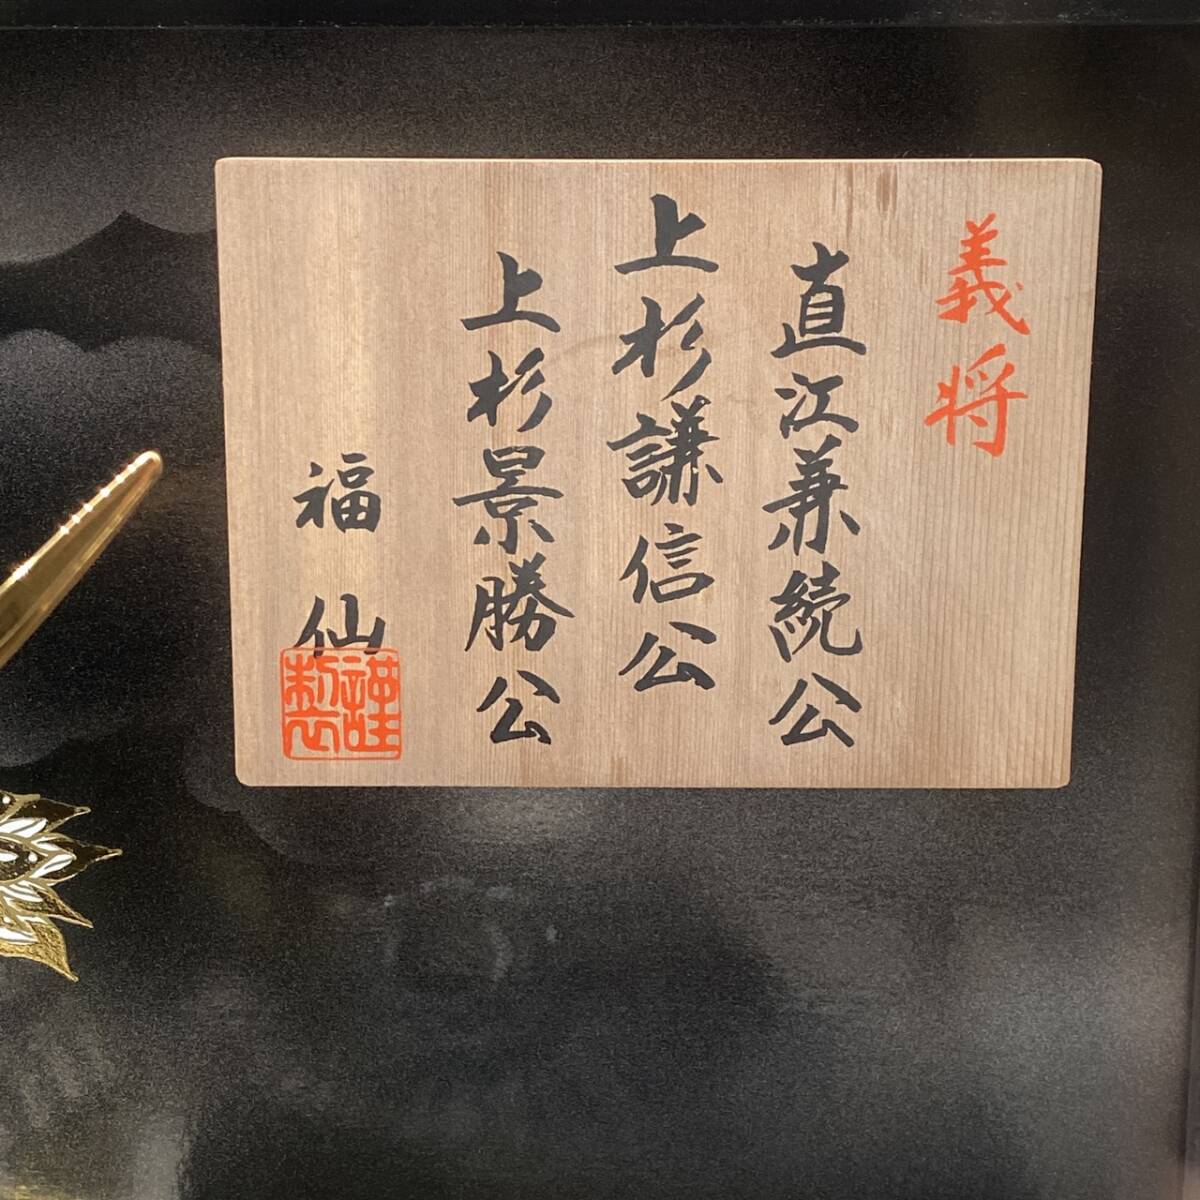 義将
直江兼続公
上杉謙信公
上杉景勝公
福仙
謹製